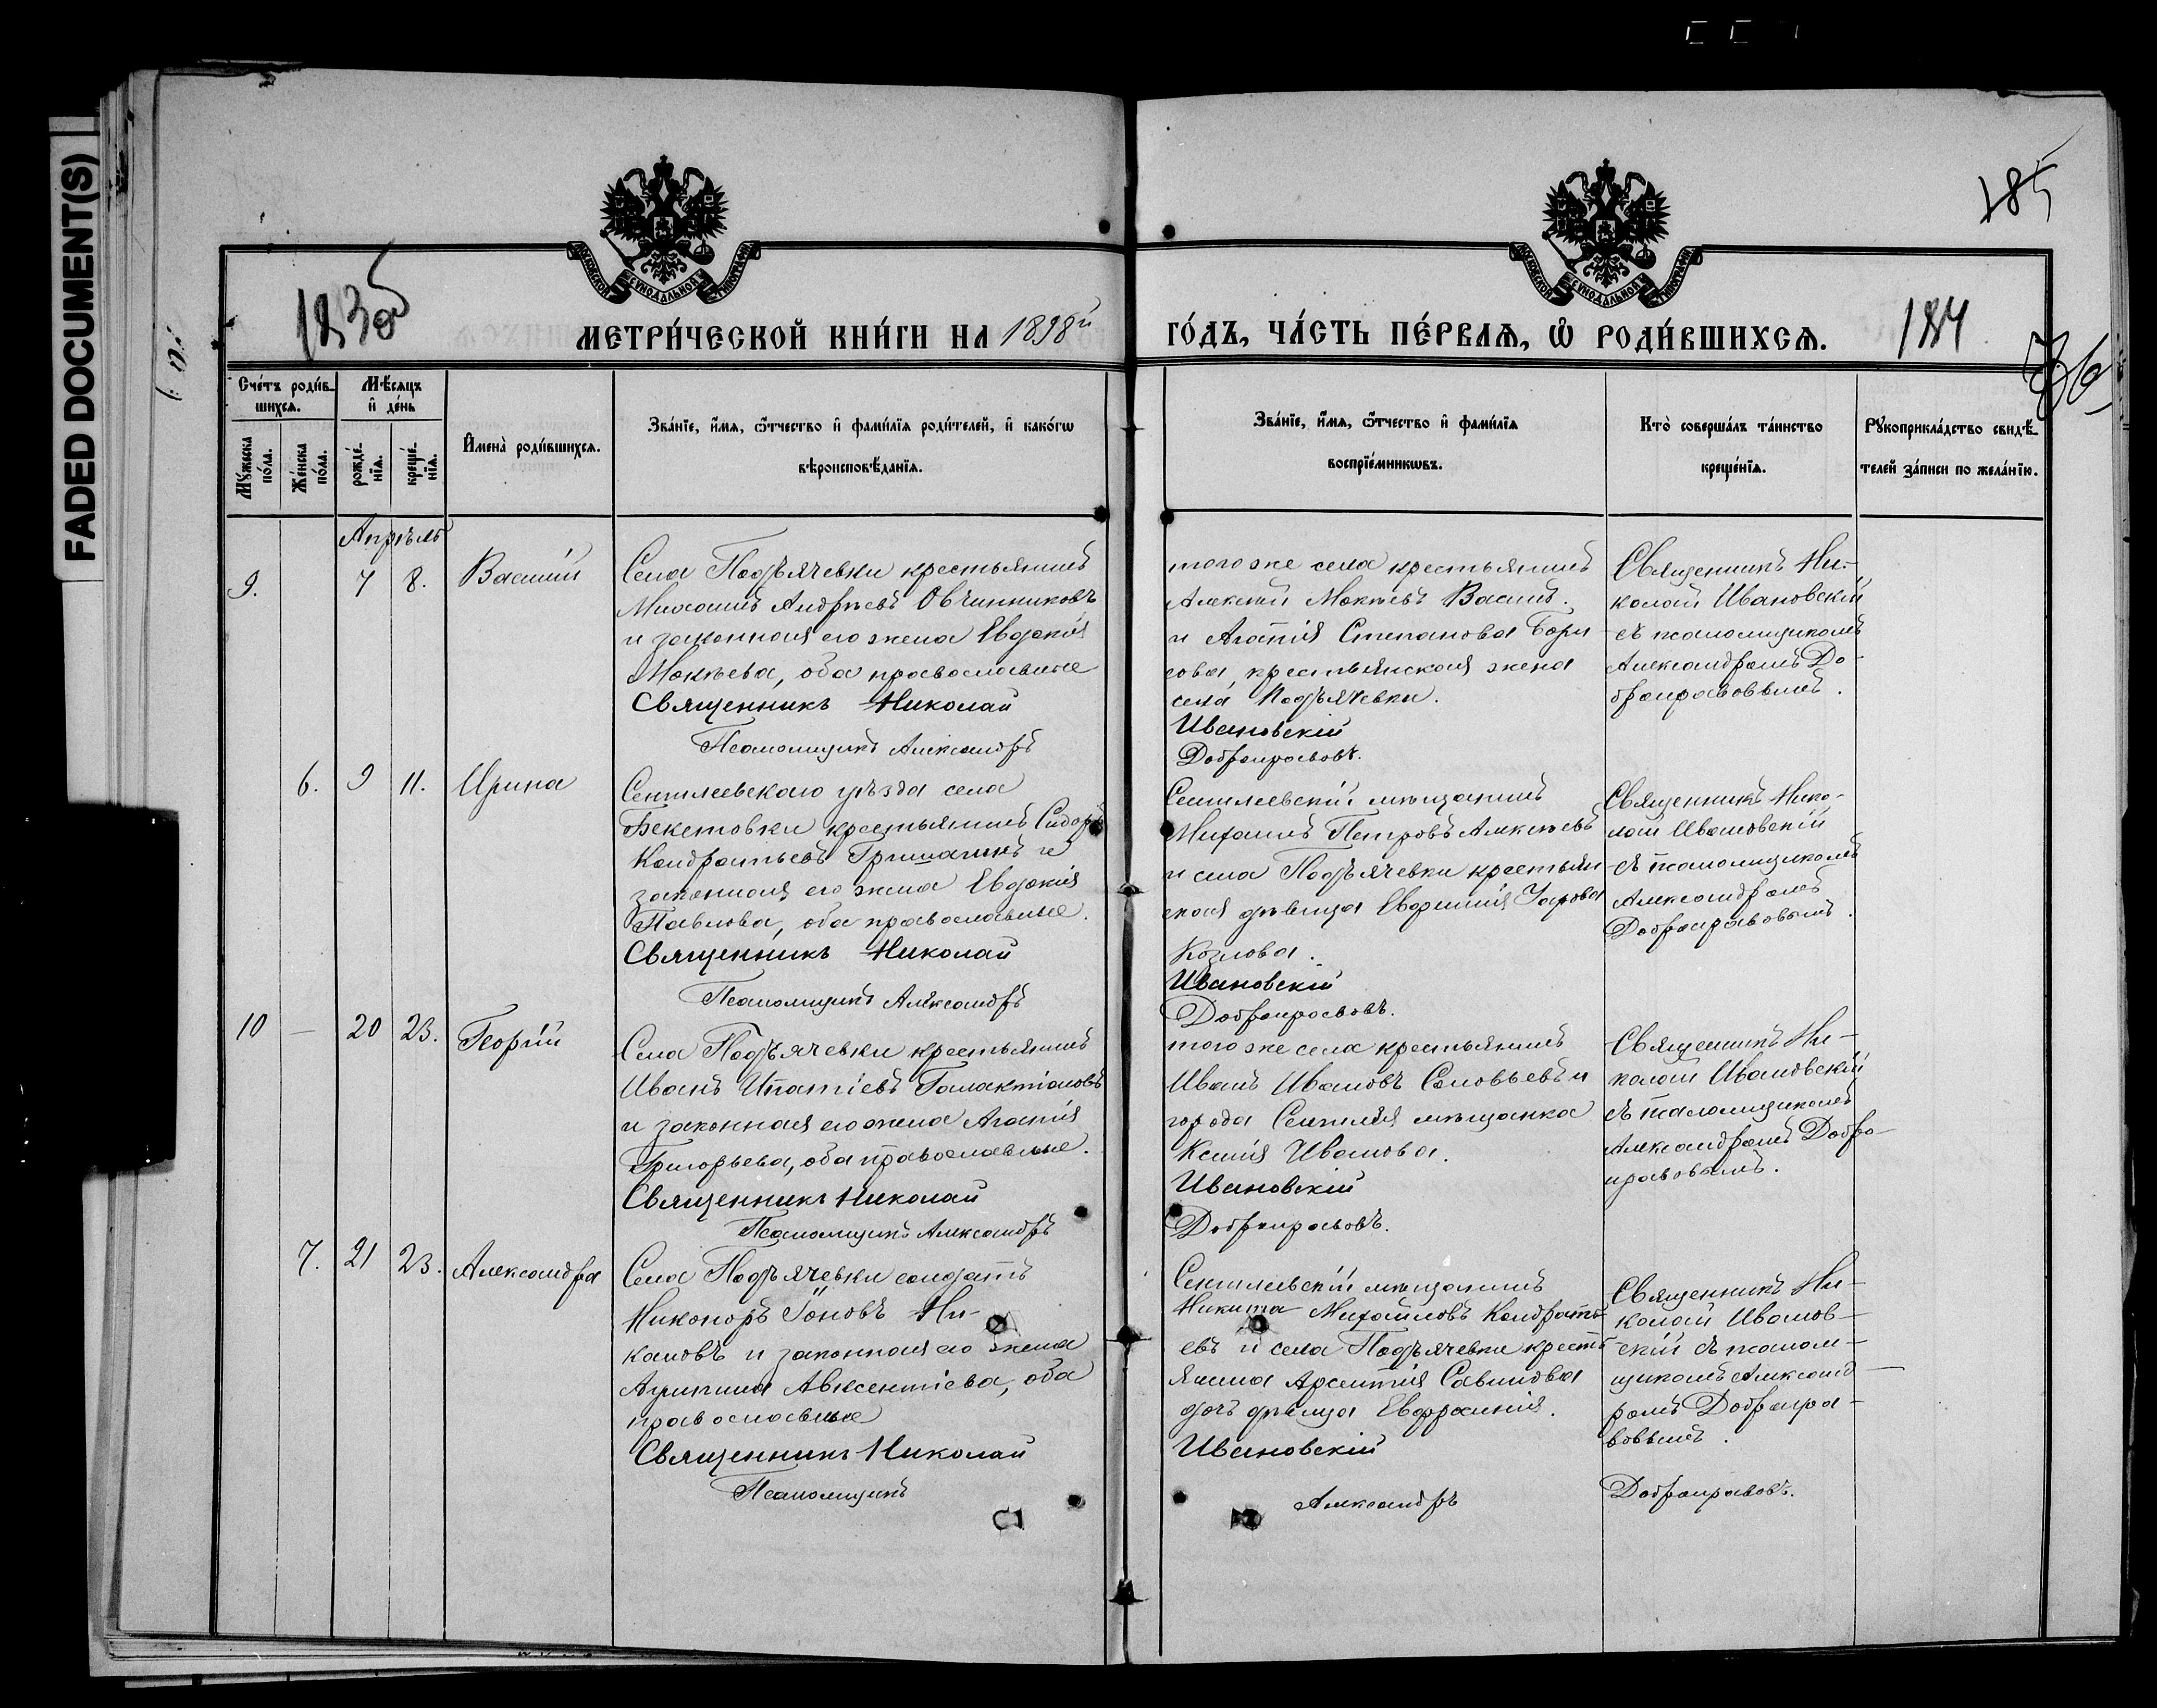 FADED DOCUMENT(S)
185
МОСКОВСКОЙ СѴНОДАЛЬНОЙ ТИПОГРАФІИ
МОСКОВСКОЙ СѴНОДАЛЬНОЙ ТИПОГРАФІИ
183об
184
МЕТРИ́ЧЕСКОЙ КНИ́ГИ НА 1898й
ГО́ДЪ, ЧА́СТЬ ПЕ́РВАѦ, Ѡ҆ РОДИ́ВШИХСѦ.
Сче́тъ роди́в-
шихсѧ.
Мꙋ́жеска по́ла.
Же́нска по́ла.
Мѣ́сѧцъ
и҆ де́нь
рожде́-нїѧ.
креще́-нїѧ.
И҆мена̀ роди́вшихсѧ.
Зва́нїе, и҆́мѧ, ѻ҆́тчество и҆ фами́лїѧ роди́телей, и҆ како́гѡ
вѣроисповѣ́данїѧ.
Зва́нїе, и҆́мѧ, ѻ҆́тчество и҆ фами́лїѧ
воспрїе́мникѡвъ.
Кто̀ соверша́лъ та́инство
креще́нїѧ.
Рꙋкоприкла́дство свидѣ́-
телей за́писи по жела́нїю.
Апрѣль
9. 7 8. Василій
Села Подъячевки крестьянинъ
Михаилъ Андреевъ Овчинниковъ
и законная его жена Евдокія
Мокѣева, оба православные
Священникъ Николай
Псаломщикъ Александръ
того же села крестьянинъ
Алексѣй Мокѣевъ Васил.
и Агапія Степанова Бори
сова, крестьянская жена
села Подъячевки.
Ивановскій
Добронравовъ.
Священникъ Ни-
колай Ивановскій
съ псаломщикомъ
Александромъ До-
бронравовымъ.
6. 9 11. Ирина
Сенгилеевскаго уѣзда села
Бекетовки крестьянинъ Сидоръ
Кондратьевъ Гришагинъ и
законная его жена Евдокія
Павлова, оба православные.
Священникъ Николай
Псаломщикъ Александръ
Сенгилеевскій мѣщанинъ
Михаилъ Петровъ Алексѣевъ
и села Подъячевки крестьян
ская дѣвица Евфимія
Козлова.
Ивановскій
Добронравовъ.
Священникъ Нико-
лай Ивановскій
съ псаломщикомъ
Александромъ
Добронравовымъ.
10 — 20 23. Георгій
Села Подъячевки крестьянинъ
Иванъ Ипатіевъ Галактіоновъ
и законная его жена Агапія
Григорьева, оба православные.
Священникъ Николай
Псаломщикъ Александръ
того же села крестьянинъ
Иванъ Ивановъ Соловьевъ и
города Сенгилея мѣщанка
Ксенія Иванова.
Ивановскій
Добронравовъ.
Священникъ Ни-
колай Ивановскій
съ псаломщикомъ
Александромъ Добро-
нравовымъ.
7. 21 23. Александра
Села Подъячевки солдатъ
Никоноръ Іоновъ Ни-
коновъ и законная его жена
Агрипина Авксентіева, оба
православные
Священникъ Николай
Псаломщикъ
Сенгилеевскій мѣщанинъ
Никита Михайловъ Кондрать-
евъ и села Подъячевки кресть
янина Арсентія Савинова
дочь дѣвица Евфросинія.
Ивановскій
Александръ
Священникъ Ни-
колай Иванов-
скій съ псалом-
щикомъ Александ-
ромъ Добронра-
вовымъ.
Добронравовъ.